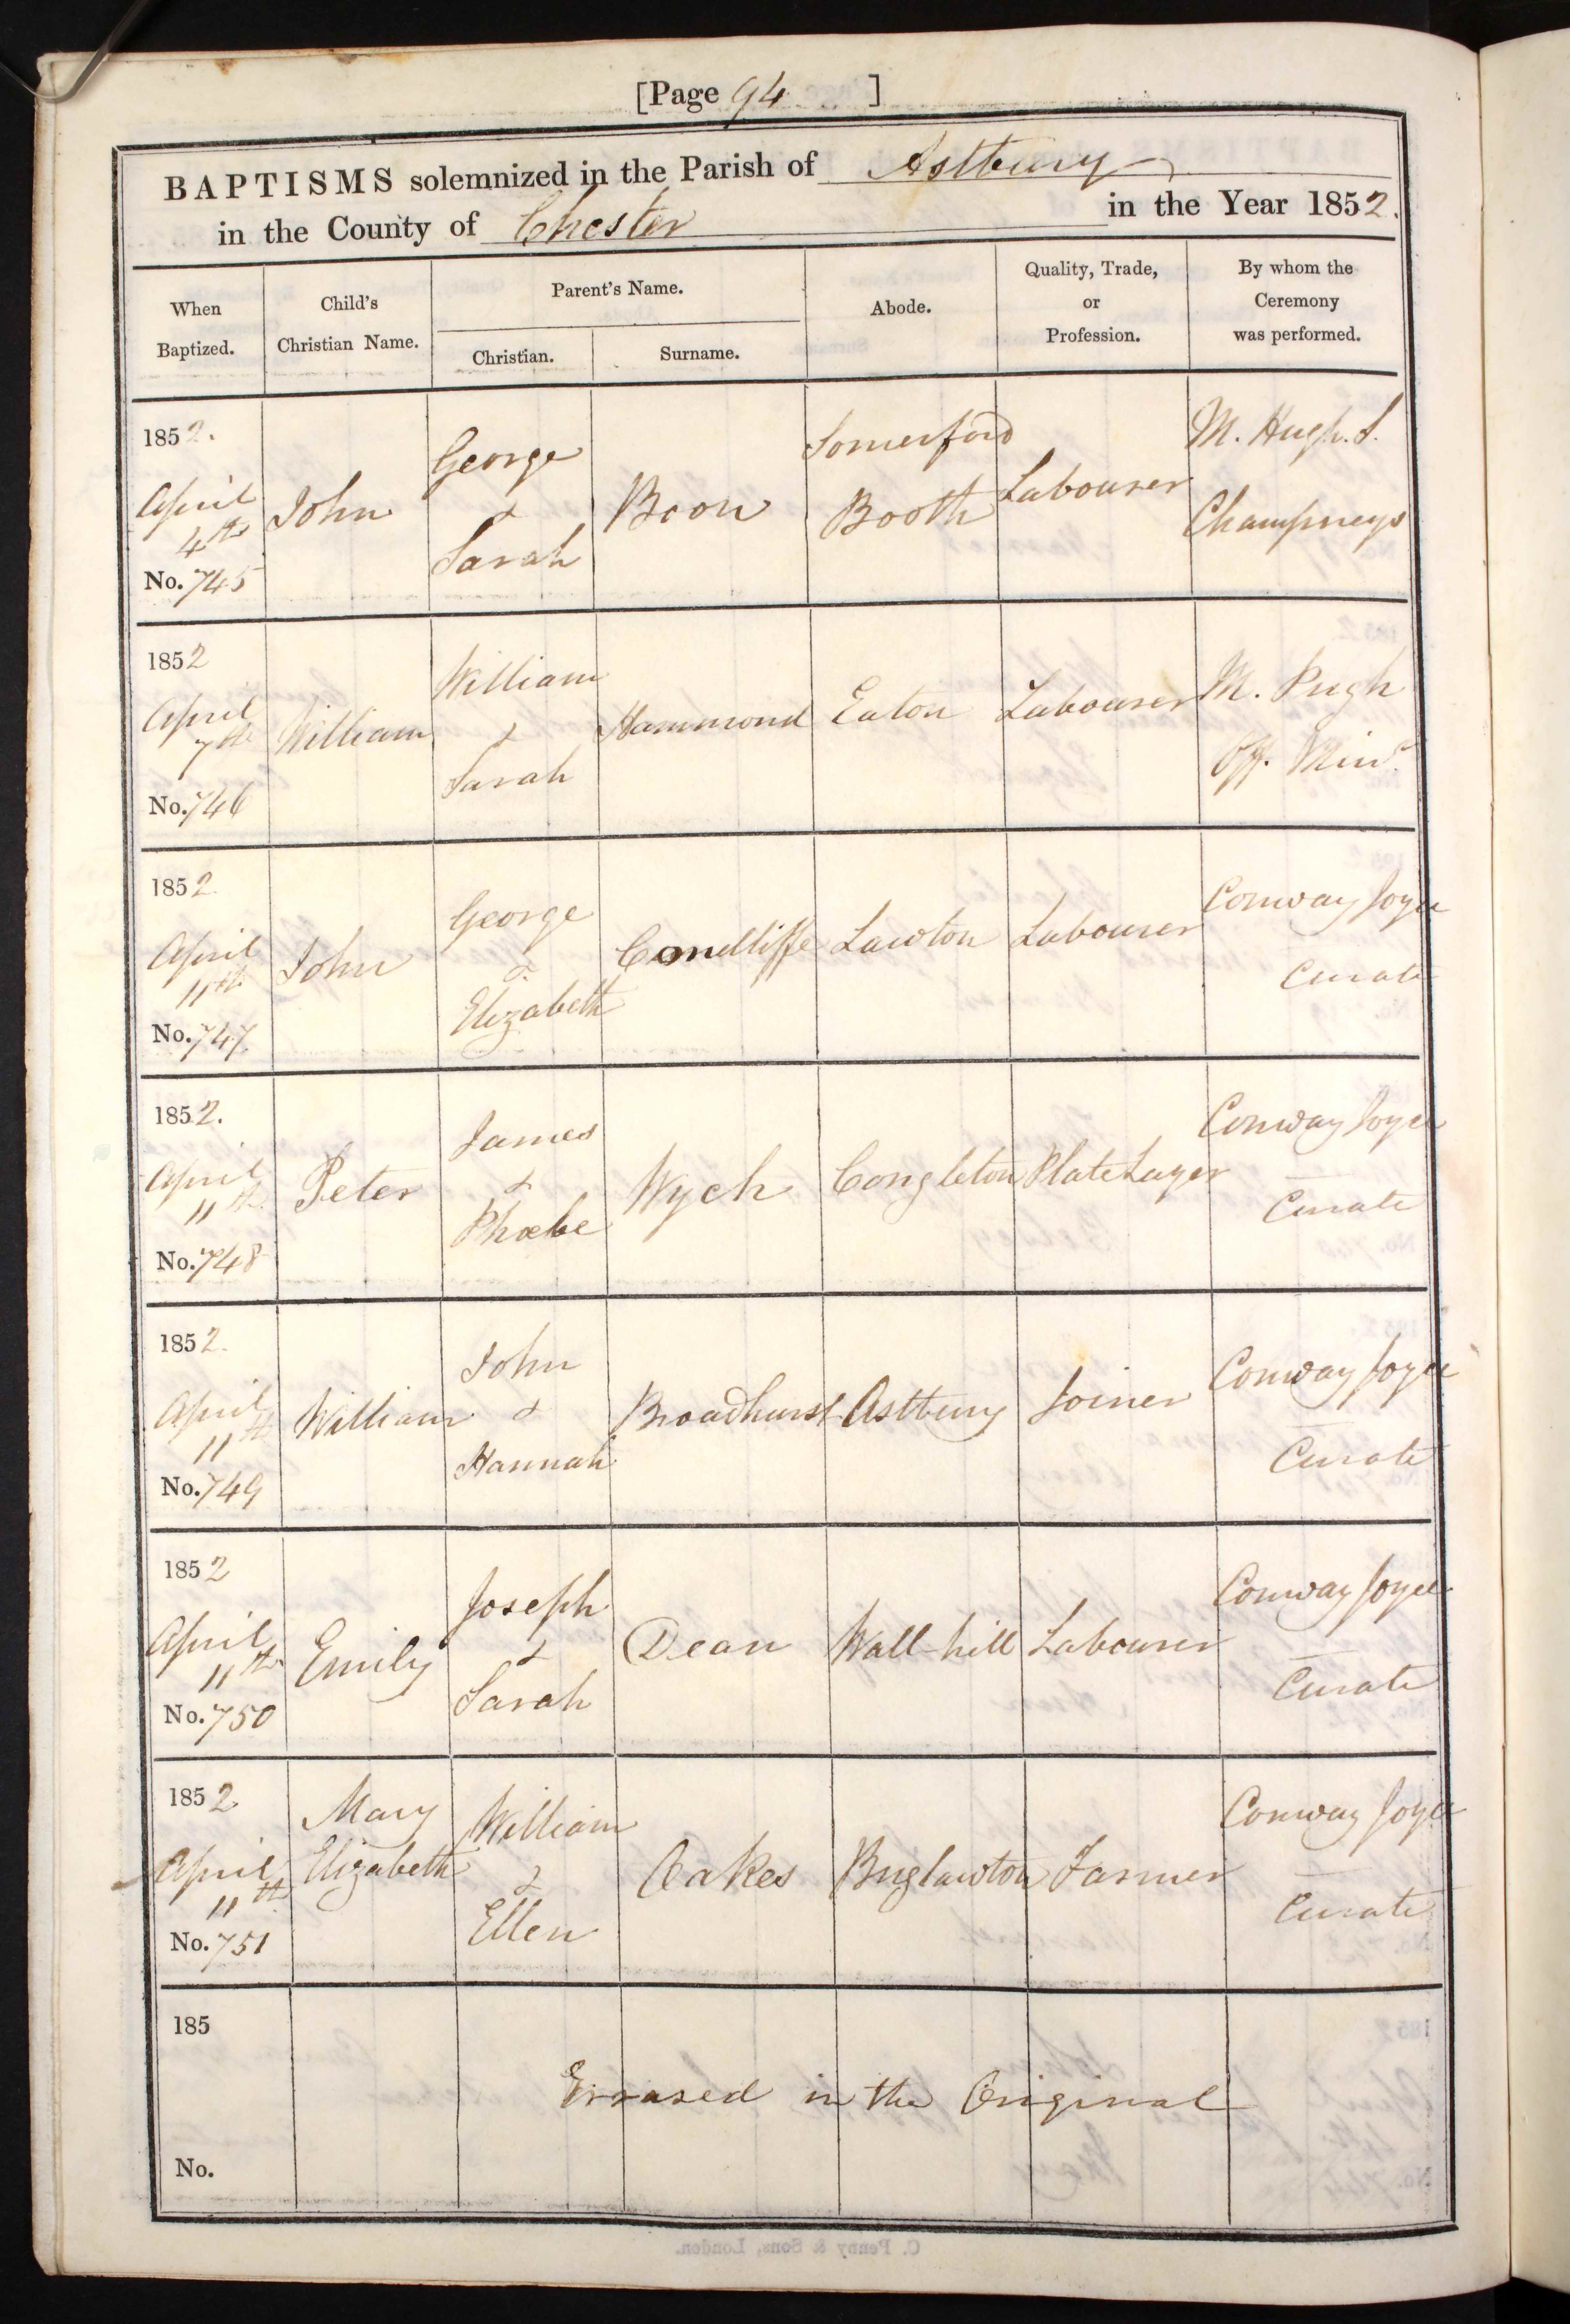 [Page 94 ]
BAPTISMS solemnized in the Parish of Astbury
in the County of Chester in the Year 1852.
When Baptized. Child's Christian Name. Parent's Name. Christian. Surname. Abode. Quality, Trade, or Profession. By whom the Ceremony was performed.
1852.
April 4th
No. 745
John
George & Sarah
Boon
Somerford Booth
Labourer
M. Hugh. S. Champneys
1852
April 7th
No. 746
William
William & Sarah
Hammond
Eaton
Labourer
M. Pugh
Off. Minr.
1852
April 11th
No. 747.
John
George & Elizabeth
Condliffe
Lawton
Labourer
Conway Joyce
Curate
1852.
April 11th.
No. 748
Peter
James & Phœbe
Wych
Congleton
Plate Layer
Conway Joyce
Curate
1852.
April 11th
No. 749
William
John & Hannah
Broadhurst
Astbury
Joiner
Conway Joyce
Curate
1852
April 11th
No. 750
Emily
Joseph & Sarah
Dean
Wall-hill
Labourer
Conway Joyce
Curate
1852
April 11th
No. 751
Mary Elizabeth
William & Ellen
Oakes
Buglawton
Farmer
Conway Joyce
Curate
185
Errased in the Original
No.
C. Penny & Sons, London.